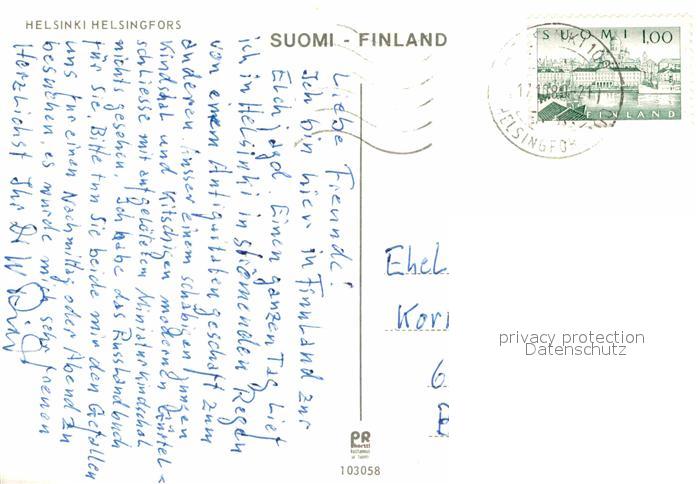 HELSINKI HELSINGFORS
SUOMI - FINLAND
SUOMI 1,00
FINLAND
HELSINGFORS
Liebe Freunde!
Ich bin hier in Finnland zur
Elchjagd. Einen ganzen Tag lief
ich in Helsinki in strömenden Regen
von einem Antiquitätengeschäft zum
anderen. Ausser einem schäbigen
Kindstal und kitschigen modernen
schliesse mit aufgelöten Miniatur
nichts gesehen. Ich habe das Russlandbuch
für Sie. Bitte tun Sie beide mir den Gefallen
uns für einen Nachmittag oder Abend zu
besuchen, es würde mich sehr freuen
Herzlichst Ihr Dr W
Ehel
Korn
6
PR
103058
privacy protection
Datenschutz